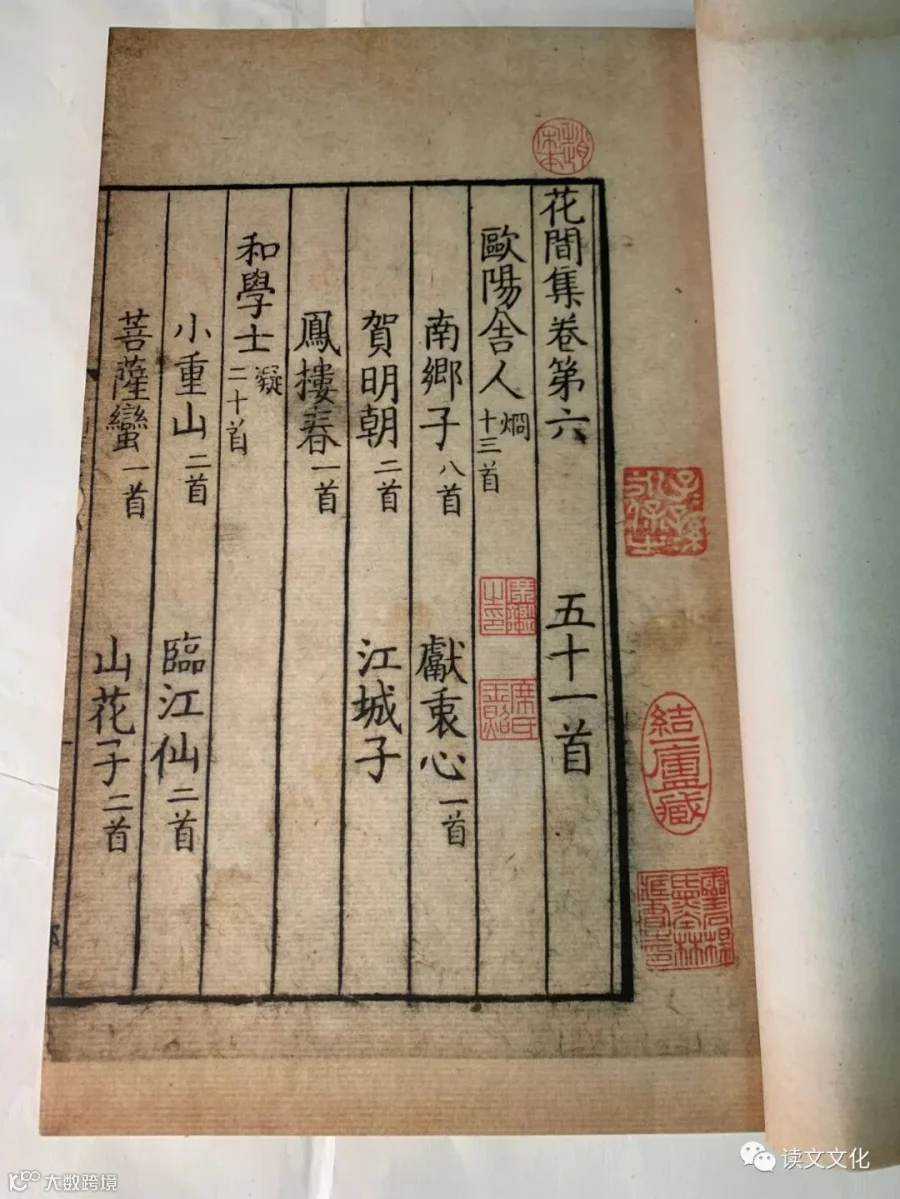 花間集卷第六 五十一首
歐陽舍人 烱 十三首
南鄉子 八首 獻衷心 一首
賀明朝 二首 江城子
鳳樓春 一首
和學士 凝 二十首
小重山 二首 臨江仙 二首
菩薩蠻 一首 山花子 二首
宋本
子子孫孫永保
結一廬藏
席氏玉照
读文文化
大数跨境